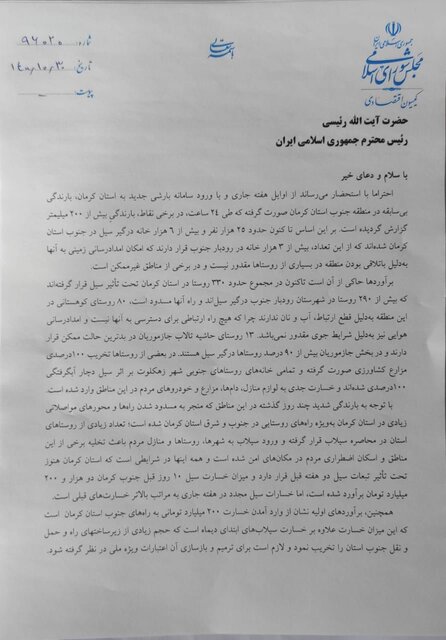 جمهوری اسلامی ایران
مجلس شورای اسلامی
کمیسیون اقتصادی
بسمه تعالی
شماره: ۹۶۰۲۰
تاریخ: ۱۴۰۰/۱۰/۳۰
پیوست:
حضرت آیت الله رئیسی
رئیس محترم جمهوری اسلامی ایران
با سلام و دعای خیر
احتراما با استحضار می‌رساند از اوایل هفته جاری و با ورود سامانه بارشی جدید به استان کرمان، بارندگی
بی‌سابقه در منطقه جنوب استان کرمان صورت گرفته که طی ۲۴ ساعت، در برخی نقاط، بارندگی بیش از ۲۰۰ میلیمتر
گزارش گردیده است. بر این اساس تا کنون حدود ۲۵ هزار نفر و بیش از ۶ هزار خانه درگیر سیل در جنوب استان
کرمان شده‌اند که از این تعداد، بیش از ۳ هزار خانه در رودبار جنوب قرار دارند که امکان امدادرسانی زمینی به آنها
به‌دلیل باتلاقی بودن منطقه در بسیاری از روستاها مقدور نیست و در برخی از مناطق غیرممکن است.
برآوردها حاکی از آن است تاکنون در مجموع حدود ۳۳۰ روستا در استان کرمان تحت تأثیر سیل قرار گرفته‌اند
که بیش از ۲۹۰ روستا در شهرستان رودبار جنوب درگیر سیل‌اند و راه آنها مسدود است، ۸۰ روستای کوهستانی در
این منطقه به‌دلیل قطع ارتباط، آب و نان ندارند چرا که هیچ راه ارتباطی برای دسترسی به آنها نیست و امدادرسانی
هوایی نیز به‌دلیل شرایط جوی مقدور نمی‌باشد. ۱۳ روستای حاشیه تالاب جازموریان در بدترین حالت ممکن قرار
دارند و در بخش جازموریان بیش از ۹۰ درصد روستاها درگیر سیل هستند. در بعضی از روستاها تخریب ۱۰۰درصدی
مزارع کشاورزی صورت گرفته و تمامی خانه‌های روستاهای جنوبی شهر زهکلوت بر اثر سیل دچار آبگرفتگی
۱۰۰درصدی شده‌اند و خسارت جدی به لوازم منازل، دام‌ها، مزارع و خودروهای مردم در این مناطق وارد شده است.
با توجه به بارندگی شدید چند روز گذشته در این مناطق که منجر به مسدود شدن راه‌ها و محورهای مواصلاتی
زیادی در استان کرمان به‌ویژه راه‌های روستایی در جنوب و شرق استان کرمان شده است؛ تعداد زیادی از روستاهای
استان در محاصره سیلاب قرار گرفته و ورود سیلاب به شهرها، روستاها و منازل مردم باعث تخلیه برخی از این
مناطق و اسکان اضطراری مردم در مکان‌های امن شده است و همه اینها در شرایطی است که استان کرمان هنوز
تحت تأثیر تبعات سیل دو هفته قبل قرار دارد و میزان خسارت سیل ۱۰ روز قبل جنوب کرمان دو هزار و ۲۰۰
میلیارد تومان برآورد شده است، اما خسارات سیل مجدد در هفته جاری به مراتب بالاتر خسارت‌های قبلی است.
همچنین، برآوردهای اولیه نشان از وارد آمدن خسارت ۲۰۰ میلیارد تومانی به راه‌های جنوب استان کرمان است
که این میزان خسارت علاوه بر خسارت سیلاب‌های ابتدای دیماه است که حجم زیادی از زیرساختهای راه و حمل و
نقل جنوب استان را تخریب نمود و لازم است برای ترمیم و بازسازی آن اعتبارات ویژه ملی در نظر گرفته شود.